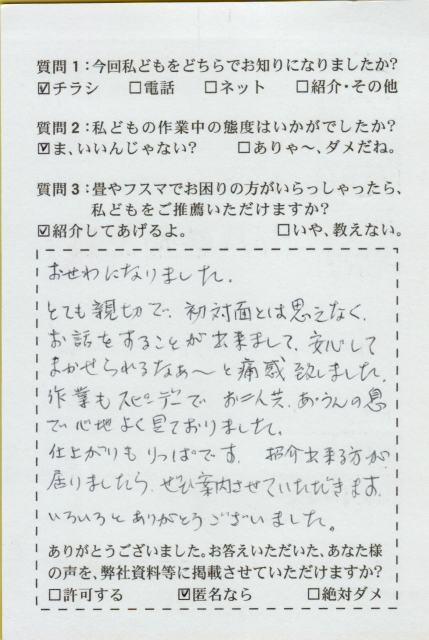 質問1:今回私どもをどちらでお知りになりましたか?
☑チラシ □電話 □ネット □紹介・その他
質問2:私どもの作業中の態度はいかがでしたか?
☑ま、いいんじゃない? □ありゃ〜、ダメだね。
質問3:畳やフスマでお困りの方がいらっしゃったら、
私どもをご推薦いただけますか?
☑紹介してあげるよ。 □いや、教えない。
おせわになりました。
とても親切で、初対面とは思えなく、
お話をすることが出来まして、安心して
まかせられるなぁ〜と痛感致しました。
作業もスピーデーでお二人共、あ・うんの息
で心地よく見ておりました。
仕上がりもりっぱです。紹介出来る方が
居りましたら、ぜひ案内させていただきます。
いろいろとありがとうございました。
ありがとうございました。お答えいただいた、あなた様
の声を、弊社資料等に掲載させていただけますか?
□許可する ☑匿名なら □絶対ダメ